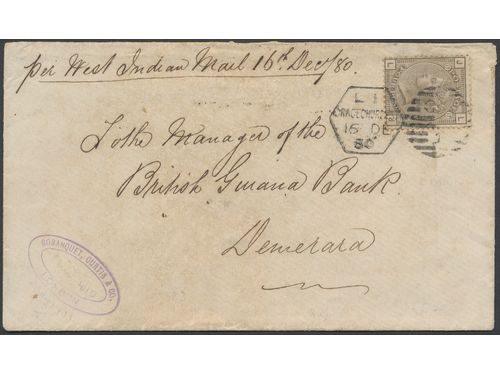 per West Indian Mail 16th Dec/80.
GRACECHURCH
16 DE
80
To the Manager of the
British Guiana Bank
Demerara
BOSANQUET, CURTIS & CO.
LONDON